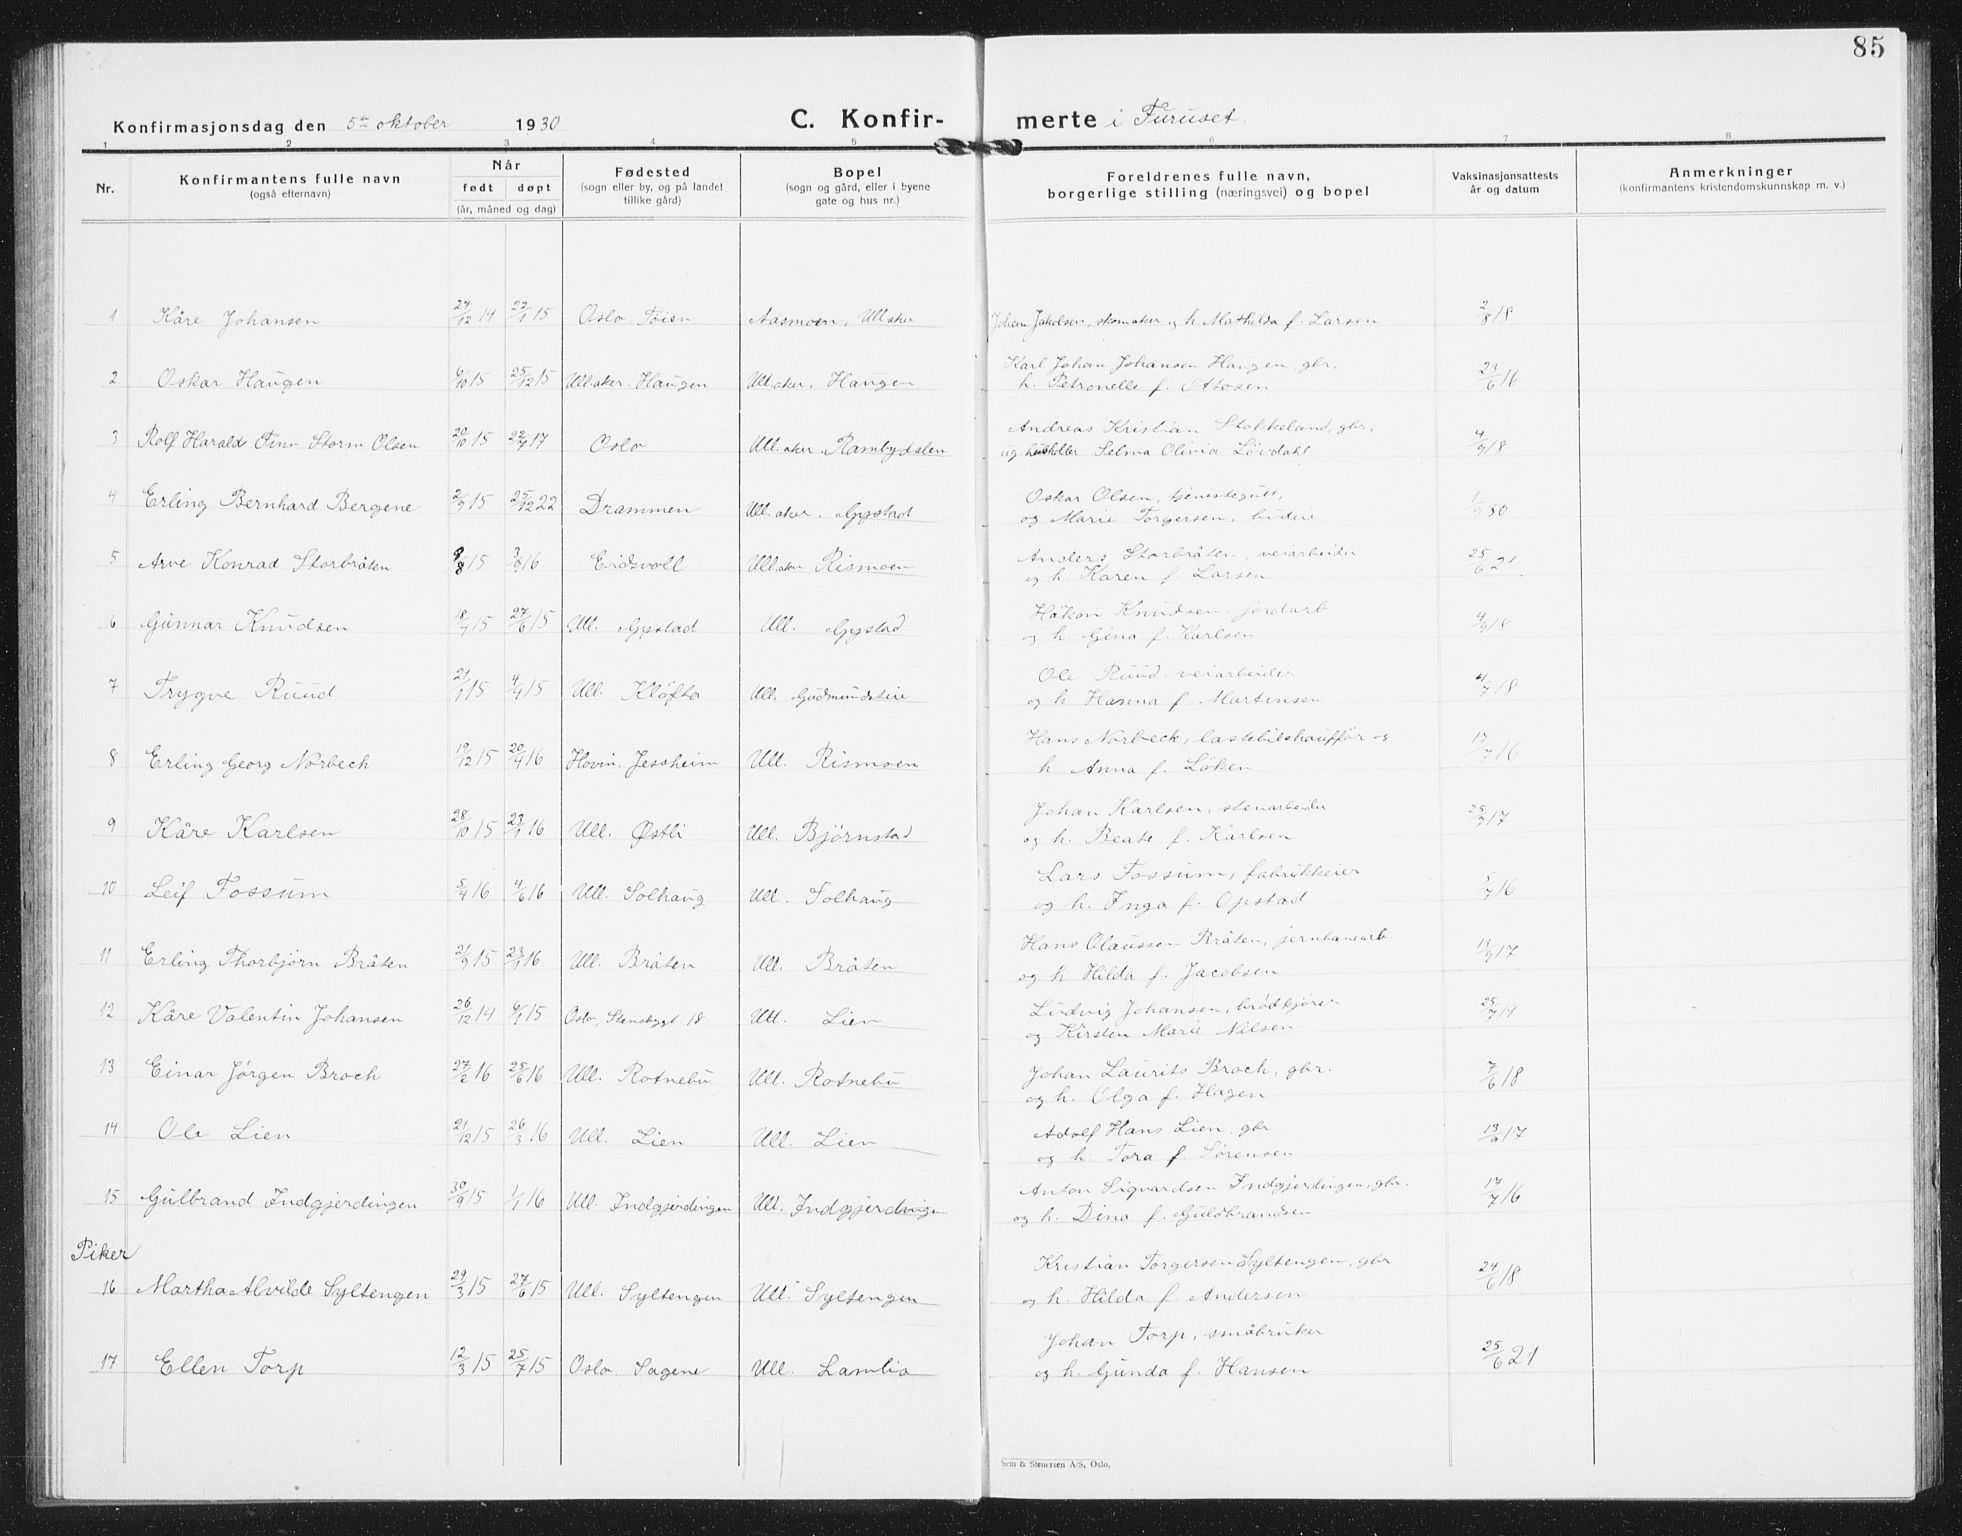 85
Konfirmasjonsdag den 5te oktober 1930 C. Konfir- merte i Furuset.
1 2 3 4 5 6 7 8
Nr. Konfirmantens fulle navn (også efternavn) Når født døpt (år, måned og dag) Fødested (sogn eller by, og på landet tillike gård) Bopel (sogn og gård, eller i byene gate og hus nr.) Foreldrenes fulle navn, borgerlige stilling (næringsvei) og bopel Vaksinasjonsattests år og datum Anmerkninger (konfirmantens kristendomskunnskap m. v.)
1 Kåre Johansen 27/12 14 22/1 15 Oslo. Töien Aasmoen, Ullaker Johan Jakobsen, skomaker og h. Mathilda f. Larsen 2/8 18
2 Oskar Haugen 6/10 15 25/12 15 Ullaker. Haugen Ullaker, Haugen Karl Johan Johansen Haugen, gbr.
h. Petronelle f. Ottosen 23/6 16
3 Rolf Harald Finn Storm Olsen 20/10 15 22/7 17 Oslo Ullaker. Rambydalen Andreas Kristian Stokkeland, gbr,
og Selma Olivia Lövdahl 4/9 18
4 Erling Bernhard Bergene 2/9 15 25/12 22 Drammen Ullaker. Gystad Oskar Olsen, tjenestegutt,
og Marie Torgersen, budeie 1/9 30
5 Arve Konrad Storbråten 8/8 15 3/9 16 Eidsvoll Ullaker Rismoen Anders Storbråten, veiarbeider
og h. Karen f. Larsen 25/6 21
6 Gunnar Knudsen 18/4 15 27/6 15 Ull. Gystad Ull. Gystad Håkon Knudsen. jordarb.
og h. Gina f. Karlsen 4/9 18
7 Trygve Ruud 21/1 15 4/4 15 Ull. Klöfta Ull. Gudmundseie Ole Ruud. veiarbeider
og h. Hanna f. Martinsen 4/7 18
8 Erling Georg Norbech 19/12 15 20/4 16 Hovin. Jessheim Ull. Rismoen Hans Norbeck, lastebilchauffør og
h. Anna f. Löken 17/7 16
9 Kåre Karlsen 28/10 15 23/1 16 Ull. Østli Ull. Björnstad Johan Karlsen, stenarbeider
og h. Beate f. Karlsen 25/7 17
10 Leif Fossum 5/4 16 4/6 16 Ull. Solhaug Ull. Solhaug Lars Fossum, fabrikkeier
og h. Inga f. Opstad 5/7 16
11 Erling Thorbjørn Bråten 21/9 15 23/1 16 Ull. Bråten Ull. Bråten Hans Olaussen Bråten, jernbanearb.
og h. Hilda f. Jacobsen 11/9 17
12 Kåre Valentin Johansen 26/12 14 6/1 15 Oslo, Stensbygt. 18 Ull. Lien Ludvig Johansen, brødkjører
og Kirsten Marie Nilsen 25/7 19
13 Einar Jørgen Broch 27/2 16 25/6 16 Ull. Rotnebu Ull. Rotnebu Johan Laurits Broch, gbr.
og h. Olga f. Hagen 7/6 18
14 Ole Lien 21/12 15 26/3 16 Ull. Lien Ull. Lien Adolf Hans Lien, gbr
og h. Tora f. Sörensen 13/9 17
15 Gulbrand Indgjerdingen 30/9 15 1/1 16 Ull. Indgjerdingen Ull. Indgjerdingen Anton Sigvardsen Indgjerdingen, gbr.
og h. Dina f. Guldbrandsen 17/7 16
Piker
16 Martha Alvilde Syltengen 29/3 15 27/6 15 Ull. Syltengen Ull. Syltengen Kristian Torgersen Syltengen, gbr
og h. Hilda f. Andersen 24/6 18
17 Ellen Torp 12/3 15 25/7 15 Oslo. Sagene Ull. Lamlia Johan Torp, småbruker
og h. Gunda f. Hansen 25/6 21
Sem & Stenersen A/S, Oslo.